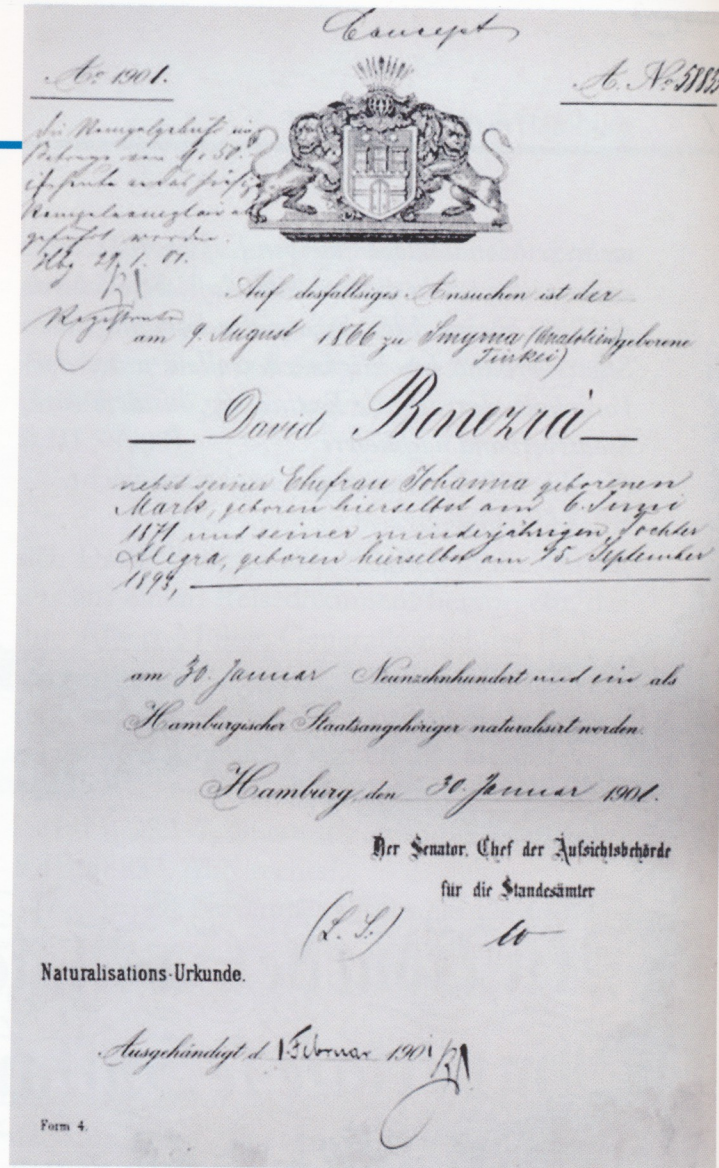 Concept
Ao 1901.
A. No 5885
die Stempelgebühr im
Betrage von M. 50.
ist heute
Stempel
geführt worden.
Hbg. 29/1. 01.
Registrator
Auf desfallsiges Ansuchen ist der
am 9. August 1866 zu Smyrna (Anatolien) geborene
Türkei)
David Benezrà
nebst seiner Ehefrau Johanna geborenen
Mark, geboren hierselbst am 6. Juni
1871 und seiner minderjährigen Tochter
Alegra, geboren hierselbst am 15. September
1899,
am 30. Januar Neunzehnhundert und ein als
Hamburgischer Staatsangehöriger naturalisirt worden.
Hamburg, den 30. Januar 1901.
Der Senator, Chef der Aufsichtsbehörde
für die Standesämter
(L. S.)
Naturalisations-Urkunde.
Ausgehändigt d. 1. Februar 1901
Form 4.